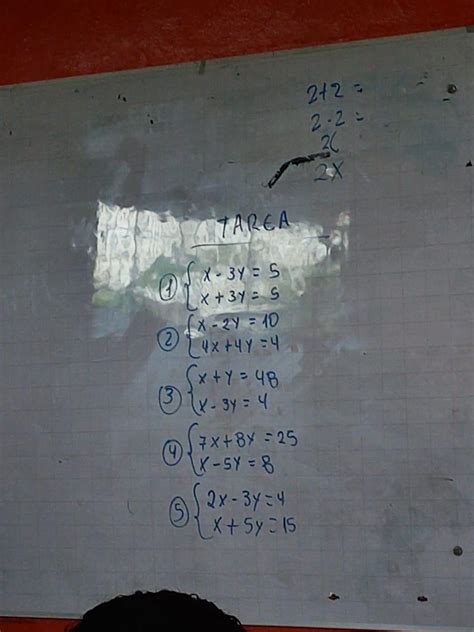 2+2=
2-2=
2(
2x
TAREA
① { x-3y=5
x+3y=5
② { x-2y=10
4x+4y=4
③ { x+y=48
x-3y=4
④ { 7x+8y=25
x-5y=8
⑤ { 2x-3y=4
x+5y=15